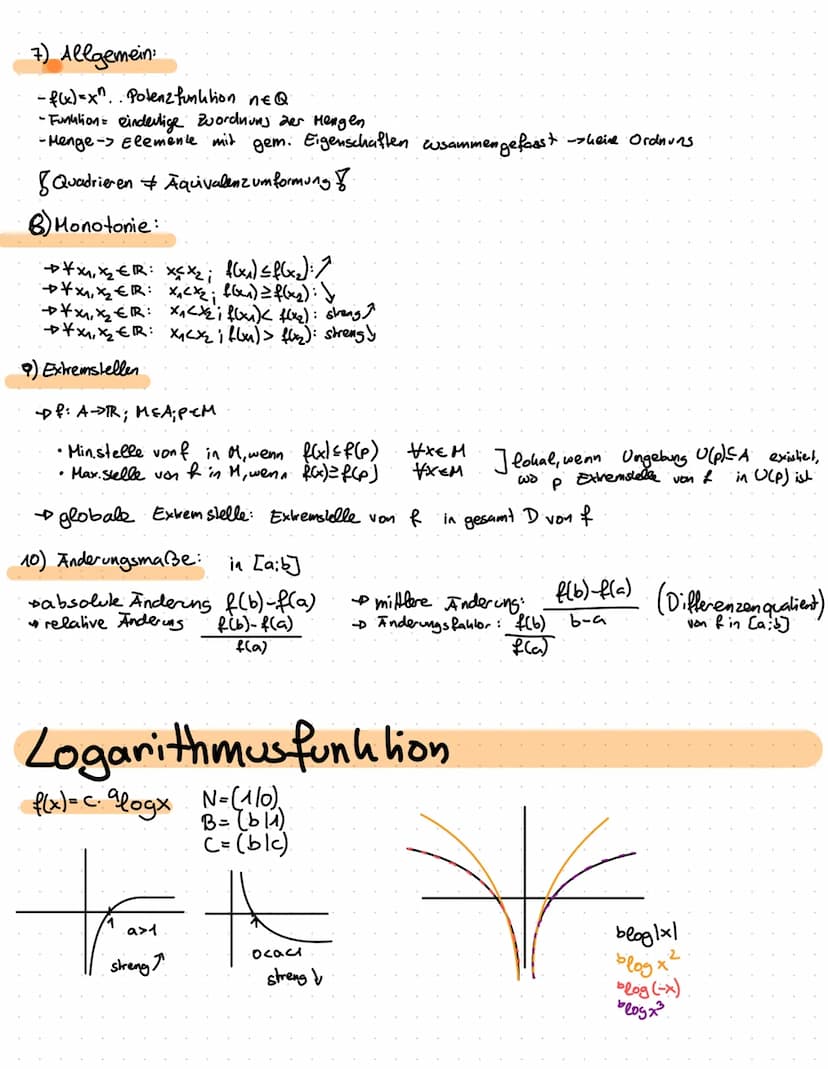 7) Allgemein:
- f(x)=xⁿ .. Potenzfunktion n∈Q
- Funktion = eindeutige Zuordnung zer Mengen
- Menge -> Elemente mit gem. Eigenschaften zusammengefasst -> keine Ordnung
Quadrieren ≠ Äquivalenzumformung
8) Monotonie:
→ ∀ x₁, x₂ ∈ ℝ: x₁<x₂ ; f(x₁) ≤ f(x₂): ↗
→ ∀ x₁, x₂ ∈ ℝ: x₁<x₂ ; f(x₁) ≥ f(x₂): ↘
→ ∀ x₁, x₂ ∈ ℝ: x₁<x₂ ; f(x₁) < f(x₂): streng ↗
→ ∀ x₁, x₂ ∈ ℝ: x₁<x₂ ; f(x₁) > f(x₂): streng ↘
9) Extremstellen
→ f: A→ℝ ; M⊆A; p∈M
• Min.stelle von f in M, wenn f(x) ≤ f(p) ∀x∈M
• Max.stelle von f in M, wenn f(x) ≥ f(p) ∀x∈M
] lokal, wenn Umgebung U(p)⊆A existiert,
wo p Extremstelle von f in U(p) ist
→ globale Extremstelle: Extremstelle von f in gesamt D von f
10) Änderungsmaße: in [a;b]
→ absolute Änderung f(b)-f(a)
→ relative Änderung f(b)-f(a)
f(a)
→ mittlere Änderung: f(b)-f(a)
b-a
(Differenzenquotient)
von f in [a;b]
→ Änderungsfaktor: f(b)
f(a)
Logarithmusfunktion
f(x) = c · ᵃlogx
N=(1/0)
B=(b|1)
C=(b|c)
1
a>1
streng ↗
1
0<a<1
streng ↓
ᵇlog|x|
ᵇlog x²
ᵇlog(-x)
ᵇlogx³